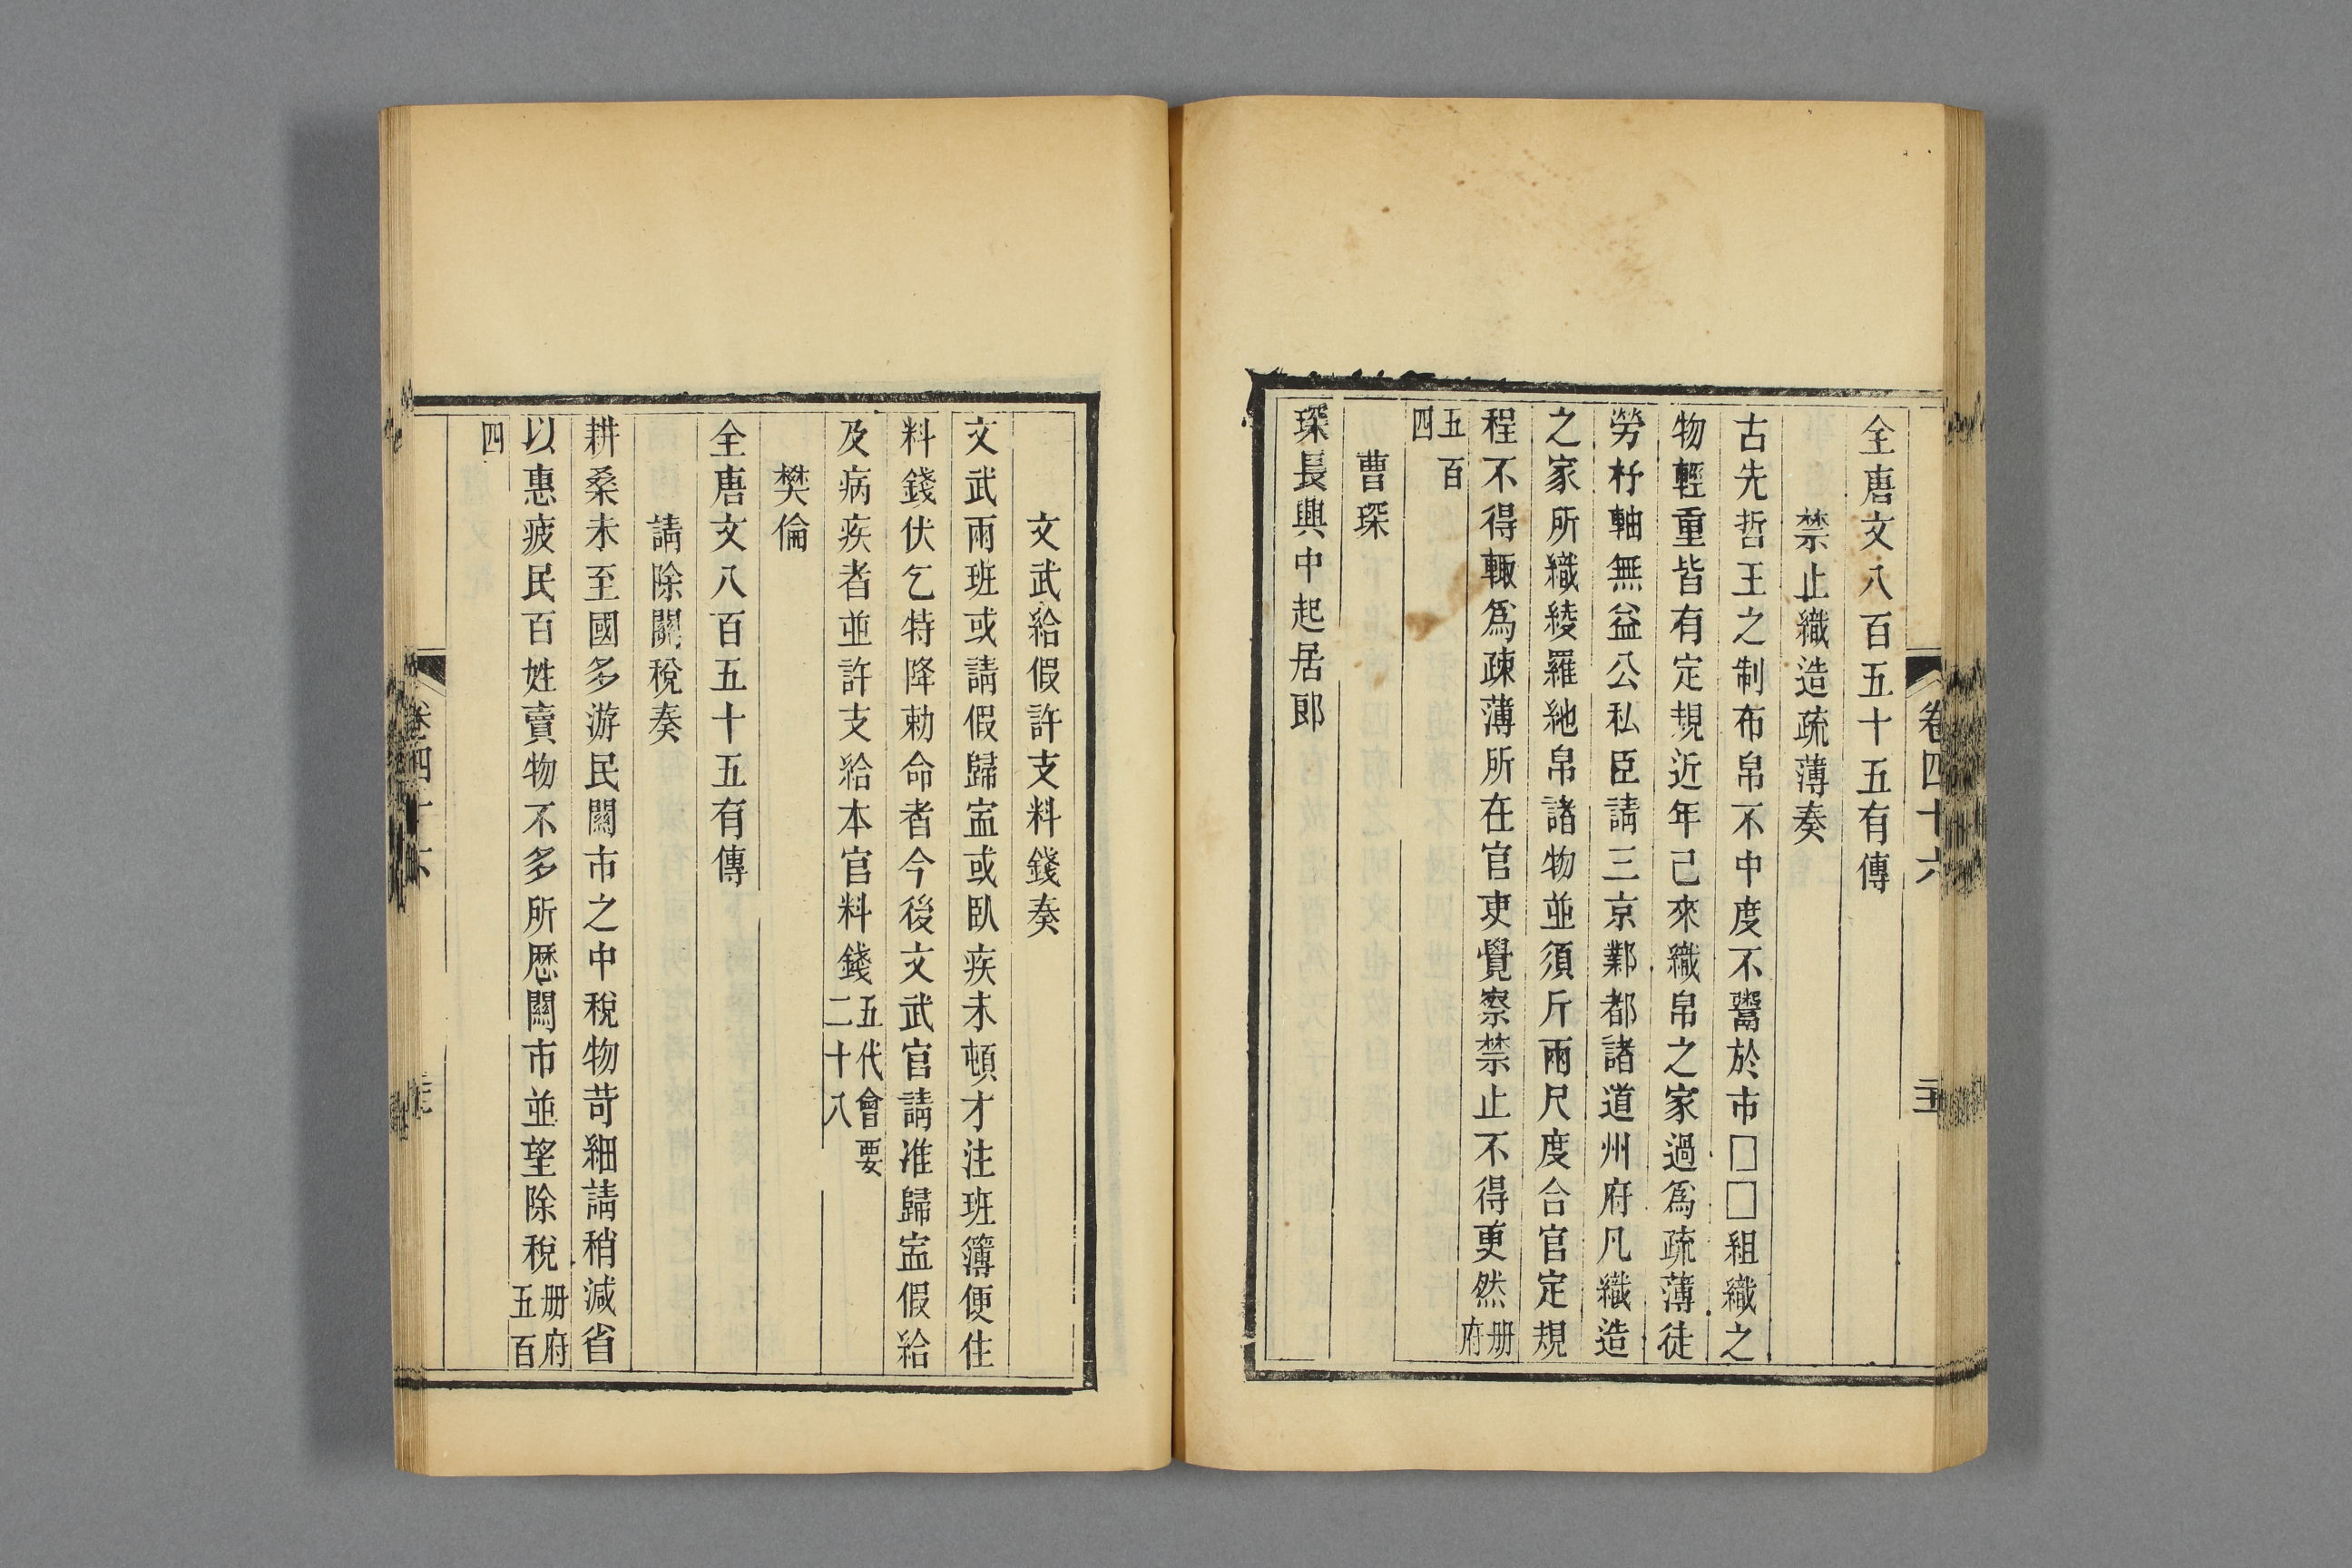 全唐文八百五十五有傳
禁止織造疏薄奏
古先哲王之制布帛不中度不鬻於市□□組織之
物輕重皆有定規近年已來織帛之家過爲疏薄徒
勞杼軸無益公私臣請三京鄴都諸道州府凡織造
之家所織綾羅絁帛諸物並須斤兩尺度合官定規
程不得輙爲疎薄所在官吏覺察禁止不得更然册府
五百四
曹琛
琛長興中起居郎
卷四十六
文武給假許支料錢奏
文武兩班或請假歸寍或臥疾未頓才注班簿便住
料錢伏乞特降勅命者今後文武官請准歸寍假給
及病疾者並許支給本官料錢五代會要二十八
樊倫
全唐文八百五十五有傳
請除關稅奏
耕桑未至國多游民關市之中稅物苛細請稍減省
以惠疲民百姓賣物不多所歷關市並望除稅册府五百
四